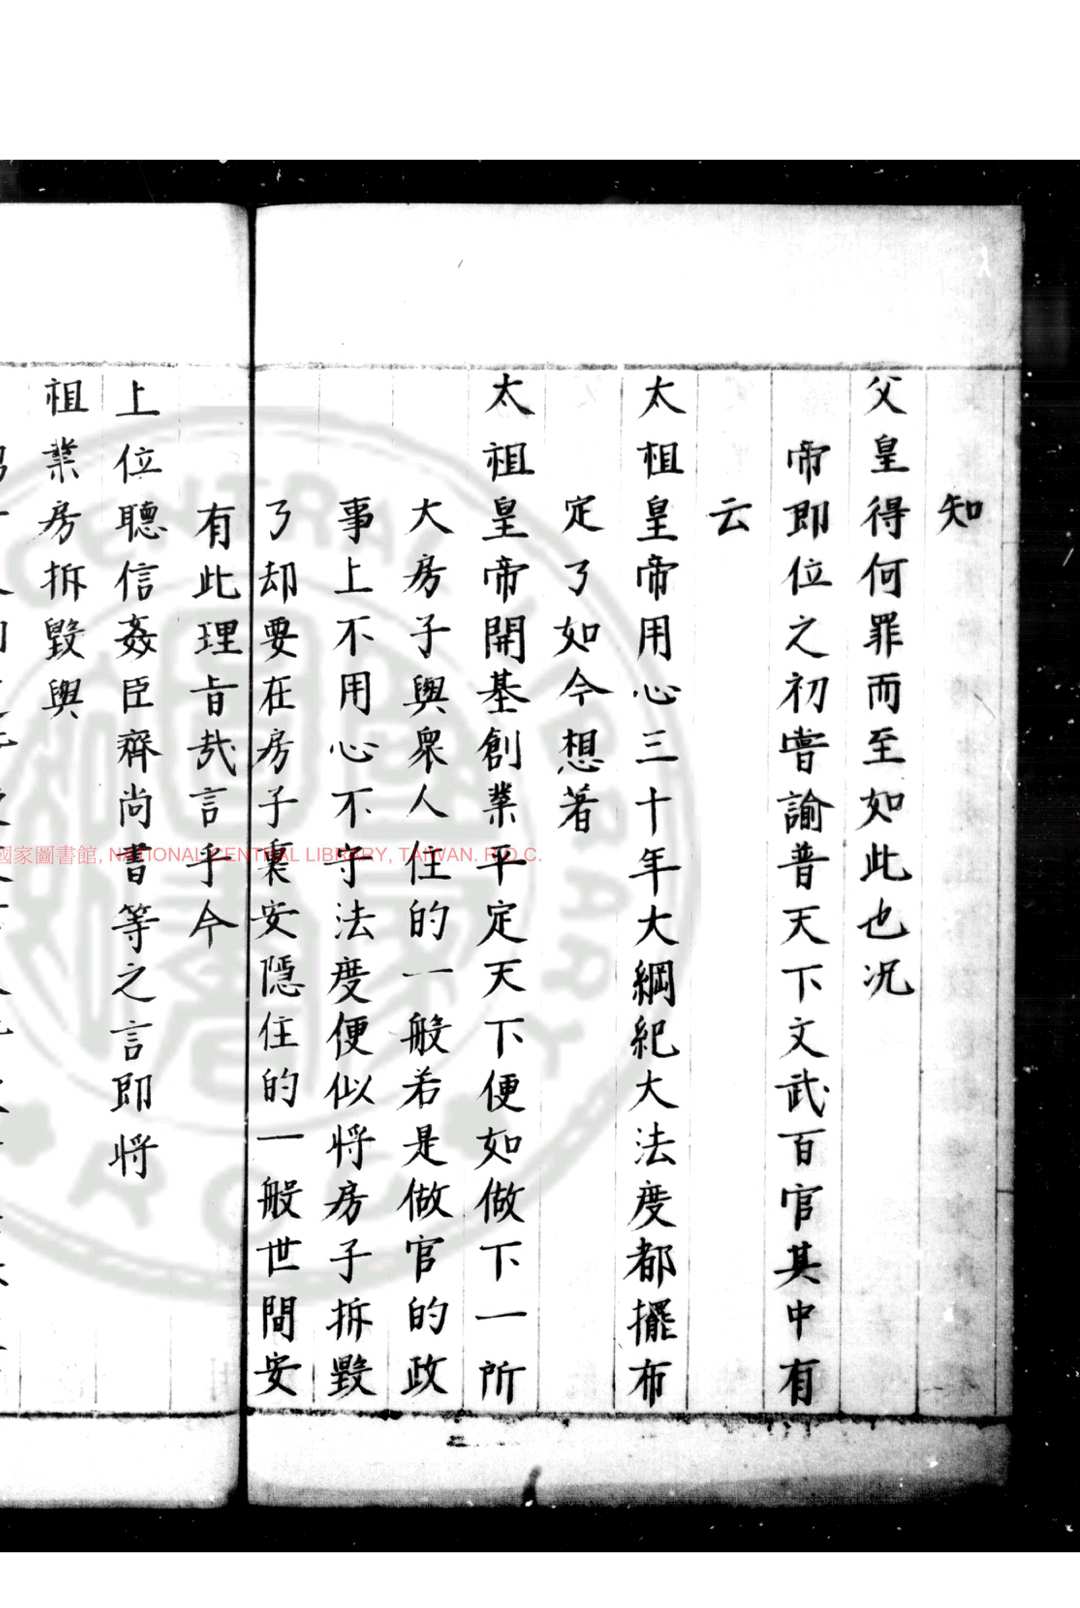 知
父皇得何罪而至如此也况
帝即位之初嘗諭普天下文武百官其中有
云
太祖皇帝用心三十年大綱紀大法度都擺布
定了如今想著
太祖皇帝開基創業平定天下便如做下一所
大房子與衆人住的一般若是做官的政
事上不用心不守法度便似將房子拆毀
了却要在房子裏安隱住的一般世間安
有此理旨哉言乎今
上位聽信姦臣齊尚書等之言即將
祖業房拆毀與
國家圖書館, NATIONAL CENTRAL LIBRARY, TAIWAN. R.O.C.